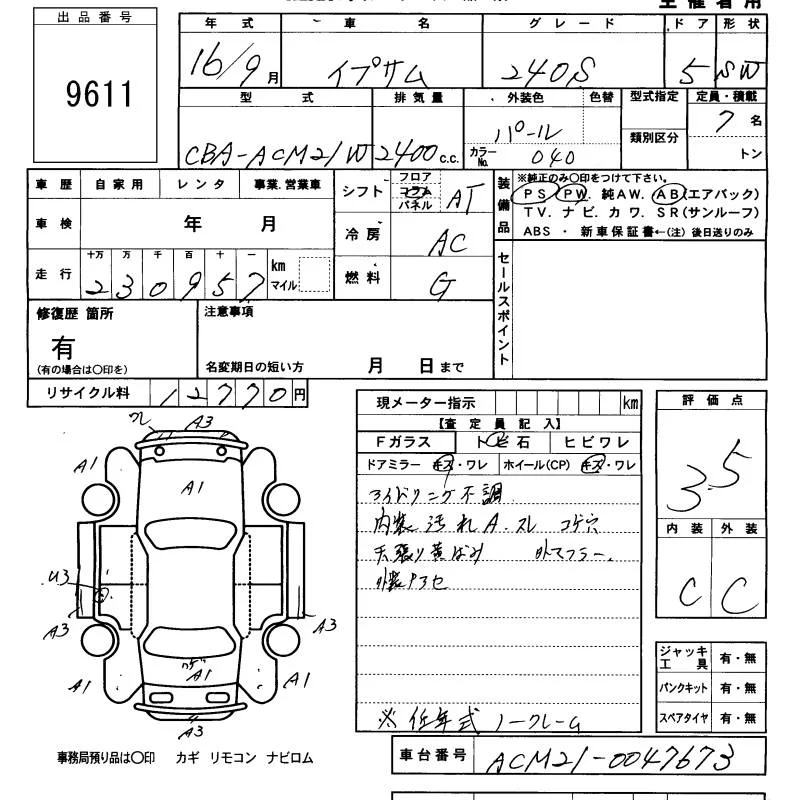 出品番号
9611
年式 車名 グレード ドア 形状
16/9月 イプサム 240S 5 SW
型式 排気量 外装色 色替 型式指定 定員・積載
CBA-ACM21W 2400c.c. パール 類別区分 7名
カラーNo. 040 トン
車歴 自家用 レンタ 事業.営業車
車検 年 月
走行 十万 万 千 百 十 一
230957 km マイル
シフト フロア コラム パネル AT
冷房 AC
燃料 G
装備品 ※純正のみ〇印をつけて下さい。
PS PW. 純AW. AB(エアバック)
TV. ナビ. カワ. SR(サンルーフ)
ABS ・ 新車保証書←(注) 後日送りのみ
セールスポイント
修復歴 箇所 注意事項
有
(有の場合は〇印を) 名変期日の短い方 月 日まで
リサイクル料 12770円
現メーター指示 km
【査定員記入】
Fガラス トビ石 ヒビワレ
ドアミラー キズ・ワレ ホイール(CP) キズ・ワレ
アイドリング不調
内装汚れA.スレ コゲ穴
天張り黄ばみ 外マフラー.
※低年式ノークレーム
評価点
3.5
内装 外装
C C
ジャッキ工具 有・無
パンクキット 有・無
スペアタイヤ 有・無
ワレ A3
A1 A1
A1
U3
A3 A3
コゲ
A1 A1 A1
A3
事務局預り品は〇印 カギ リモコン ナビロム
車台番号 ACM21-0047673